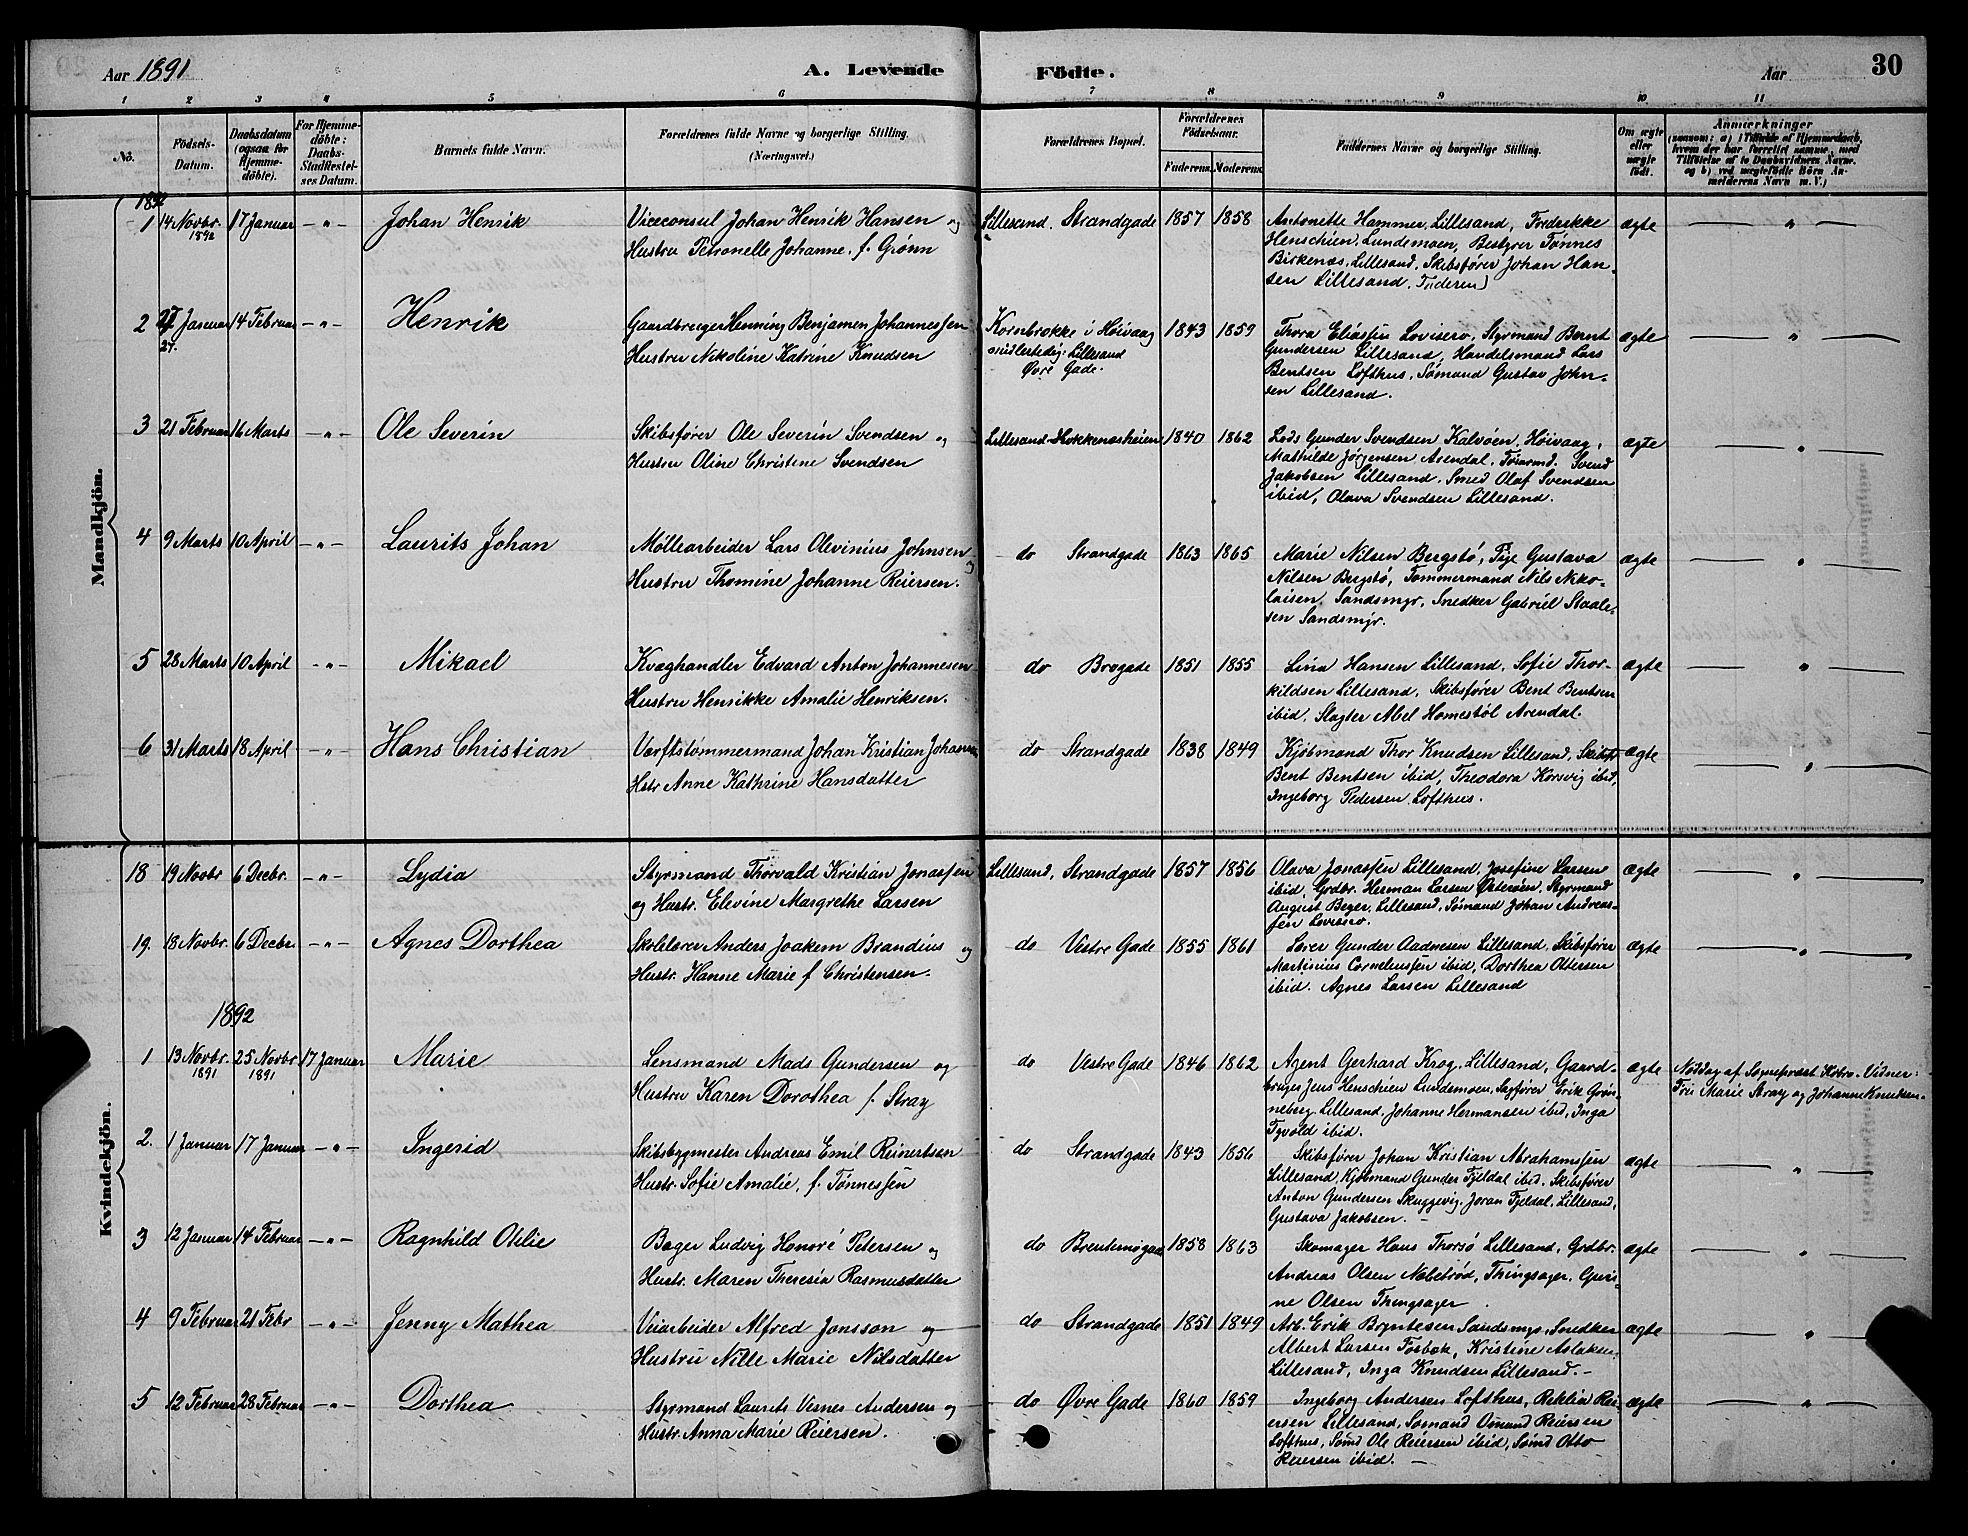 Aar 1891
A. Levende
Födte.
Aar
30
1 2 3 4 5 6 7 8 9 10 11
No.
Födsels-
Datum.
Daabsdatum
(ogsaa for
Hjemme-
döbte).
For Hjemme-
döbte:
Daabs-
Stadfæstel-
ses Datum.
Barnets fulde Navn.
Forældrenes fulde Navne og borgerlige Stilling.
(Næringsvei.)
Forældrenes Bopæl.
Forældrenes
Födselsaar.
Faderens. Moderens.
Faddernes Navne og borgerlige Stilling.
Om ægte
eller
uægte
födt.
Anmærkninger
(saasom: a) i Tilfælde af Hjemmedaab,
hvem der har forrettet samme, med
Tilföielse af to Daabsvidners Navne.
og b) ved uægtefödte Börn An-
melderens Navn m. V.)
Mandkjön.
1 14 Novbr. 17 Januar -„- Johan Henrik
1892
Viceconsul Johan Henrik Hansen og
Hustru Petronelle Johanne, f. Grönn
Lillesand. Strandgade 1857 1858
Antonette Hammer, Lillesand, Frederikke
Henschien, Lundemoen, Bestyrer Tönnes
Birkenæs, Lillesand, Skibsförer Johan Han-
sen Lillesand. Faderen)
ægte „
2 27 Januar 14 Februar -„- Henrik
27.
Gaardbruger Henning Benjamen Johannessen
Hustru Nikoline Katrine Knudsen
Kornbrokke i Höivaag
midlertidig: Lillesand
Øvre Gade.
1843 1859
Thora Eliassen Lovisero, Styrmand Bernt
Gundersen Lillesand, Handelsmand Lars
Bentsen Lofthus, Sömand Gustav John-
sen Lillesand.
ægte „
3 21 Februar 16 Marts -„- Ole Severin
Skibsförer Ole Severin Svendsen og
Hustru Oline Christine Svendsen
Lillesand Hokkenæsheien 1840 1862
Lods Gunder Svendsen Kalvöen, Höivaag,
Mathilde Jörgensen Arendal, Tömrmd. Svend
Jakobsen Lillesand. Smed Olaf Svendsen
ibid, Olava Svendsen Lillesand.
ægte „
4 9 Marts 10 April -„- Laurits Johan
Möllearbeider Lars Olevinius Johnsen og
Hustru Thomine Johanne Reiersen.
do Strandgade 1863 1865
Marie Nilsen Bergstö, Pige Gustava
Nilsen Bergstö, Tommermand Nils Niko-
laisen, Sandsmyr, Snedker Gabriel Staale-
sen Sandsmyr.
ægte „
5 28 Marts 10 April -„- Mikael
Kvæghandler Edvard Anton Johannesen
Hustru Henrikke Amalie Henriksen.
do Brogade 1851 1855
Lina Hansen Lillesand, Sofie Thor-
kildsen Lillesand, Skibsförer Bent Bentsen
ibid, Slagter Abel Homestöl Arendal.
ægte „
6 31 Marts 18 April „ Hans Christian
Værftstömmermand Johan Kristian Johansen
Hstr Anne Kathrine Hansdatter
do Strandgade 1838 1849
Kjöbmand Thor Knudsen Lillesand, Skibsf.
Bent Bentsen ibid, Theodora Korsvig ibid,
Ingeborg Pedersen Lofthus.
ægte „
Kvindekjön.
18 19 Novbr 6 Decbr. -„- Lydia
Styrmand Thorvald Kristian Jonassen
og Hustr. Elevine Margrethe Larsen
Lillesand, Strandgade 1857 1856
Olava Jonassen Lillesand, Josefine Larsen
ibid, Grdbr. Herman Larsen Østeröen, Styrmand
August Beger, Lillesand, Sömand Johan Andreas-
sen Lovisero.
ægte „
19. 18 Novbr. 6 Decbr. -„- Agnes Dorthea
Skolelærer Anders Joakem Brandius og
Hustr. Hanne Marie f Christensen.
do Vestre Gade 1855 1861
Lærer Gunder Aadnesen Lillesand, Skibsförer
Martinius Corneliussen ibid, Dorthea Ottersen
ibid. Agnes Larsen Lillesand
ægte „
1892
1 13 Novbr. 25 Novbr 17 Januar Marie
1891 1891
Lensmand Mads Gundersen og
Hustru Karen Dorothea f. Stray
do Vestre Gade 1846 1862
Agent Gerhard Krog, Lillesand, Gaard-
bruger Jens Henschien Lundemoen, Sagförer Erik Grön-
neberg Lillesand, Johanne Hermansen ibid, Inga
Tyvold ibid.
ægte
Nöddøb af Sognepræst Kobro. Vidner:
Fru Marie Stray og Johanne Knudsen.
2. 1 Januar 17 Januar -„- Ingerid
Skibsbygmester Andreas Emil Reinertsen
Hustr. Sofie Amalie, f. Tönnessen
do Strandgade 1843 1856
Skibsförer Johan Kristian Abrahamssen
Lillesand, Kjöbmand Gunder Fjeldal ibid. Skibsförer
Anton Gundersen Skuggevig, Joran Fjeldal, Lillesand,
Gustava Jakobsen.
ægte „
3 12 Januar 14 Februar -„- Ragnhild Otilie
Bager Ludvig Honoré Petersen og
Hustr. Maren Theresia Rasmusdatter
do Brentemögade 1858 1863
Skomager Hans Thorsö Lillesand, Grdbr.
Andreas Olsen Næbetröd, Thingsager, Guri-
ne Olsen Thingsager
ægte „
4 9 Februar 21 Febr -„- Jenny Mathea
Veiarbeider Alfred Jonsson og
Hustru Nille Marie Nilsdatter
do Strandgade 1851 1849
Arb. Erik Bryntesen Sandsmyr, Snedker
Albert Larsen Fosbæk, Kristine Aslaksen
Lillesand, Inga Knudsen Lillesand.
ægte „
5 12 Februar 28 Februar -„- Dorthea
Styrmand Laurits Vernes Andersen og
Hustr. Anna Marie Reiersen.
do Øvre Gade 1860 1859
Ingeborg Andersen Lofthus, Reklia Rei-
ersen Lillesand, Sömand Osmund Reiersen
Lofthus, Sömd Ole Reiersen ibid, Sömd Otto
Reiersen ibid.
ægte „